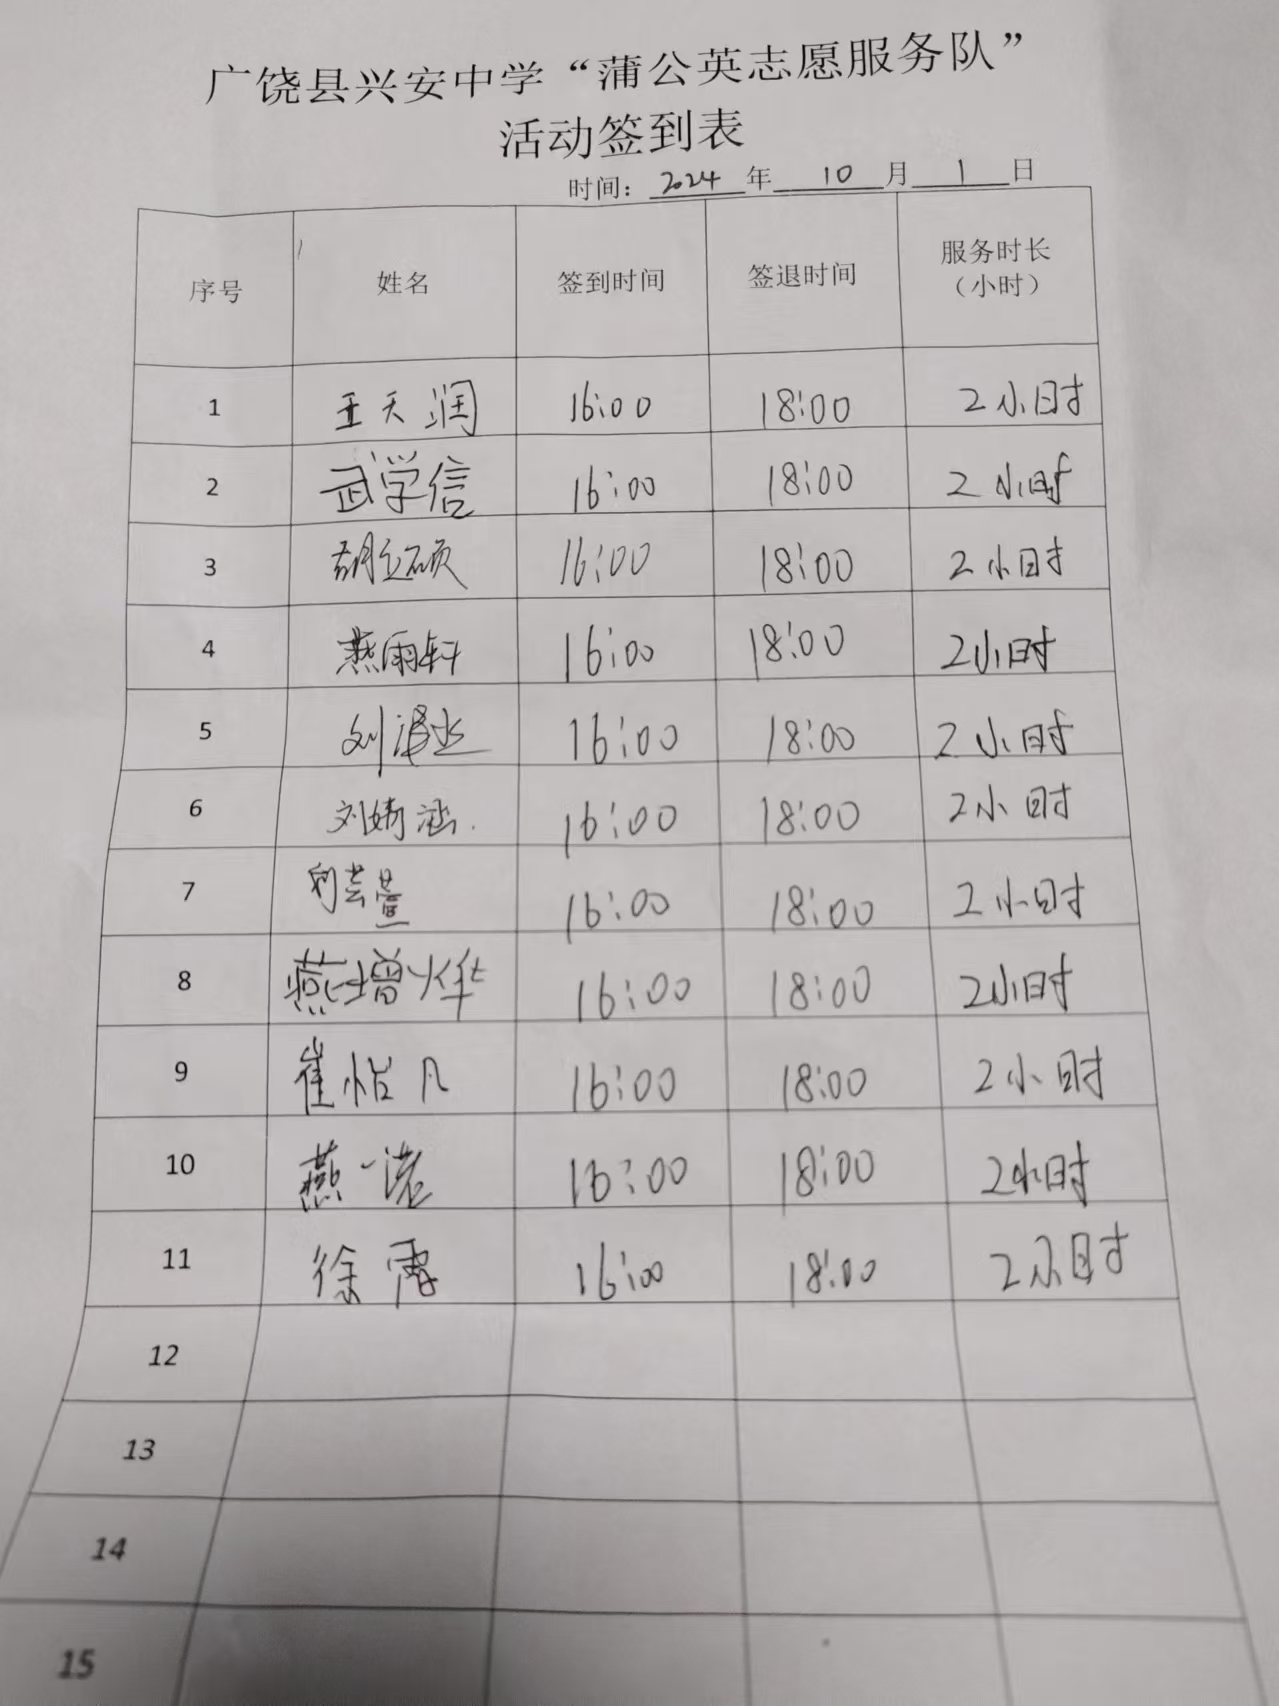 广饶县兴安中学“蒲公英志愿服务队”
活动签到表
时间：2024年10月1日
序号 姓名 签到时间 签退时间 服务时长（小时）
1 王天润 16:00 18:00 2小时
2 武学信 16:00 18:00 2小时
3 胡立硕 16:00 18:00 2小时
4 燕雨轩 16:00 18:00 2小时
5 刘 16:00 18:00 2小时
6 刘婧涵 16:00 18:00 2小时
7 芸萱 16:00 18:00 2小时
8 燕增烨 16:00 18:00 2小时
9 崔怡凡 16:00 18:00 2小时
10 燕一诺 16:00 18:00 2小时
11 徐 16:00 18:00 2小时
12
13
14
15